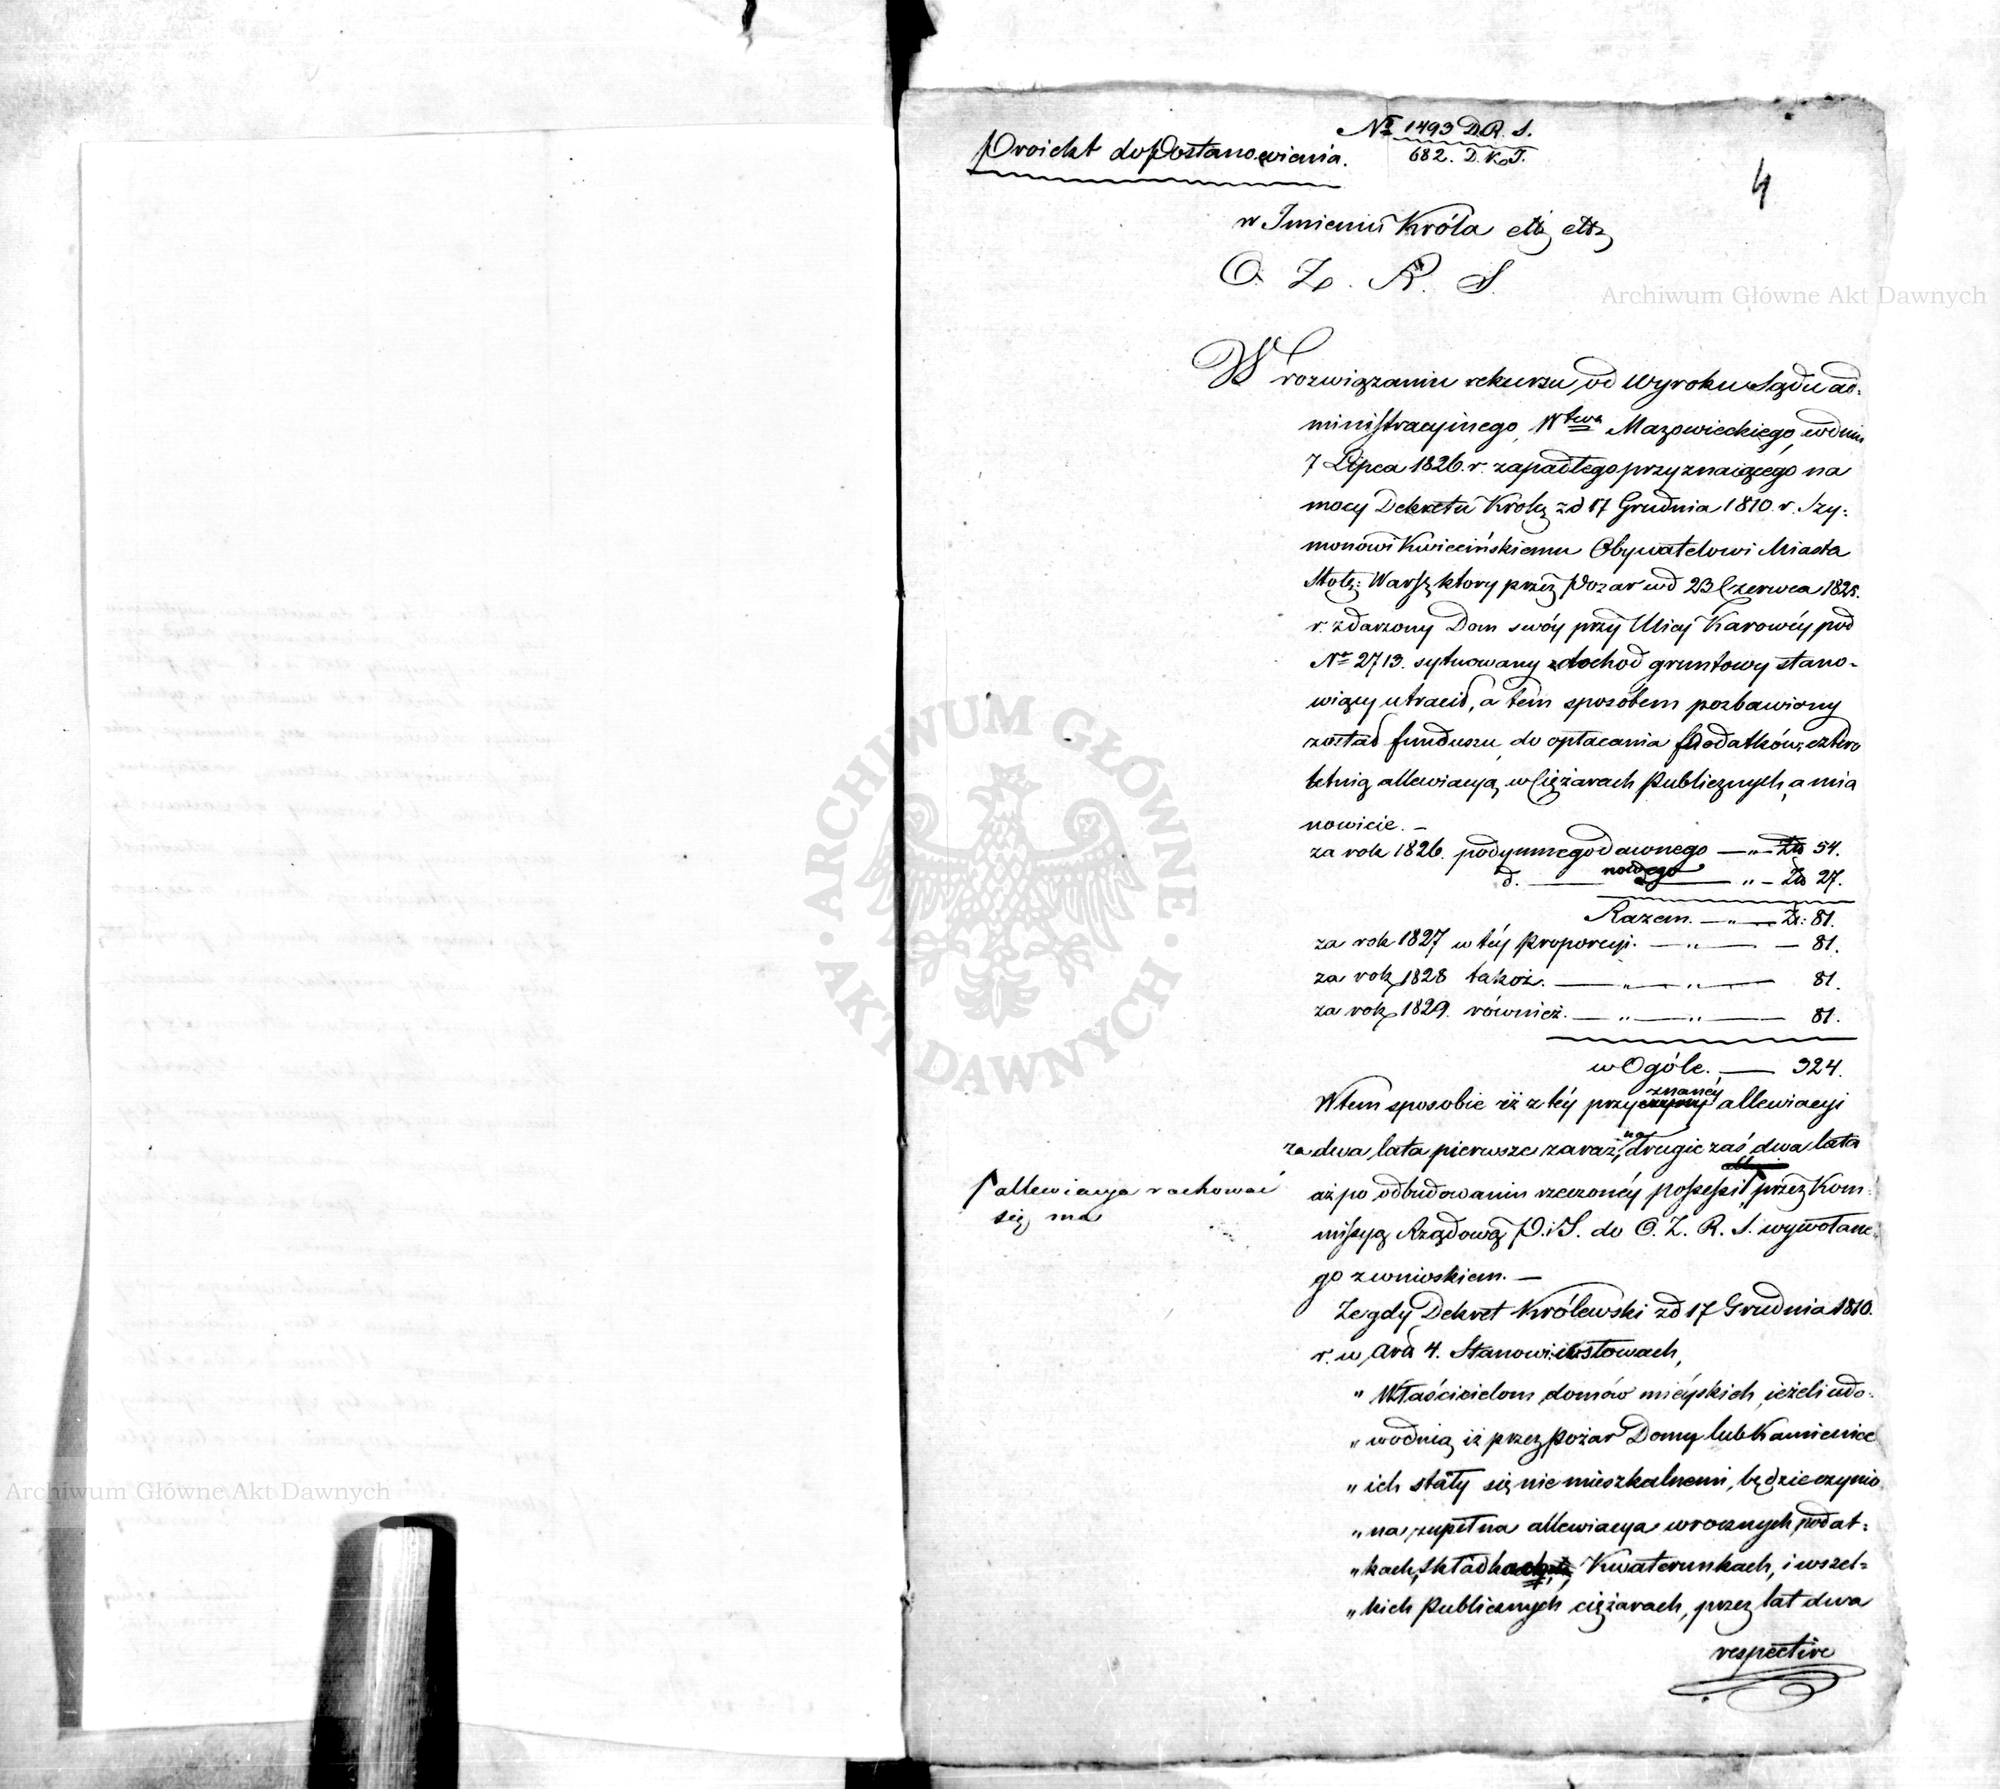 Proiekt do Postanowienia.
№ 1493 D.R.S.
682. D.K.J.
4
w Jmieniu Króla etc etc
O. Z. R. S.
W rozwiązaniu rekursu, od Wyroku Sądu ad=
ministracyinego, Wtwa Mazowieckiego, w dniu
7 Lipca 1826. r. zapadłego przyznaiącego na
mocy Dekretu Krolą zd 17 Grudnia 1810. r. Szy=
monowi Kwiecińskiemu Obywatelowi Miasta
Stołę: Warsz ktory przez Pozar wd 23 Czerwca 1825.
r. zdarzony Dom swóy przy Ulicy Karowéy pod
Nr 2713. sytuowany dochod gruntowy stano-
wiący utracił, a tem sposobem pozbawiony
został funduszu, do opłacania Podatków, cztero
letnią allewiacyą, w Ciężarach Publicznych, a mia
nowicie. –
za rok 1826. podymnego dawnego — „ — Zło 54.
d. — nowego — „ — Zło 27.
Razem. — „ — Zł: 81.
za rok 1827 w téy Proporcyi. — „ — 81.
za rok 1828 takoż. — „ — „ — 81.
za rok 1829. również. — „ — „ — 81.
w Ogóle. — 324.
W tem sposobie iż z téy przyznanéy allewiacyi
za dwa lata pierwsze zaraz, na drugie zaś dwa lata
aż po odbudowaniu rzeczonéy possessii przez Kom=
allewiacya rachować
się ma
missyą Rządową P.i S. do O. Z. R. S. wywołane=
go z wnioskiem. —
Ze gdy Dekret Królewski zd 17 Grudnia 1810.
r. w Art 4. Stanowi w słowach,
„ Właścicielom domów mieyskich, ieżeli udo=
„ wodnią iż przez pożar Domy lub Kamienice
„ ich stały się nie mieszkalnemi, będzie czynio
„ na zupełna allewiacya w rocznych podat=
„ kach, składkach, Kwaterunkach, i wszel=
„ kich Publicznych ciężarach, przez lat dwa
respective
Archiwum Główne Akt Dawnych
ARCHIWUM GŁÓWNE
AKT DAWNYCH
Archiwum Główne Akt Dawnych